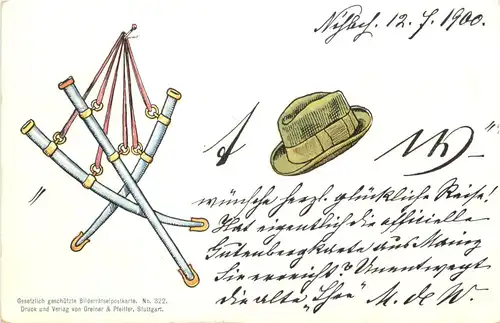 12. 7. 1900.
wünsche herzl. glückliche Reise!
Hat eigentlich die offizielle
Gutenbergkarte aus Mainz
Sie erreicht? Unentwegt
die alte „Ihre" M. de W.
Gesetzlich geschützte Bilderrätselpostkarte. No. 322.
Druck und Verlag von Greiner & Pfeiffer, Stuttgart.